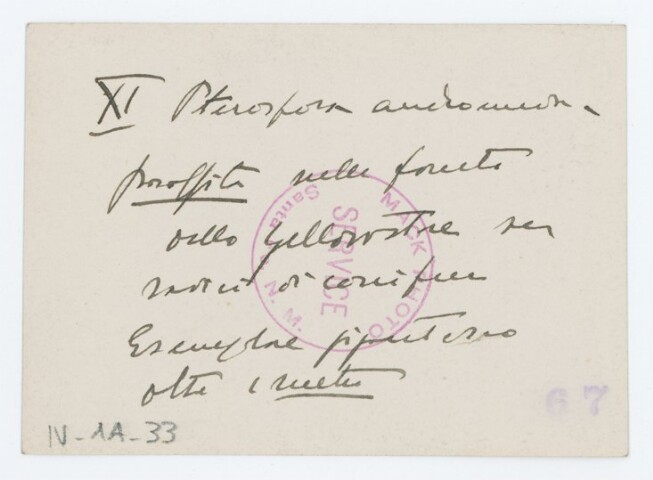 XI Pterospora andromeda
parassita nelle foreste
dello Yellowstone su
radici di conifere
Esemplare gigantesco
oltre 1 metro
MACK PHOTO
SERVICE
Santa N. M.
67
IV-1A-33